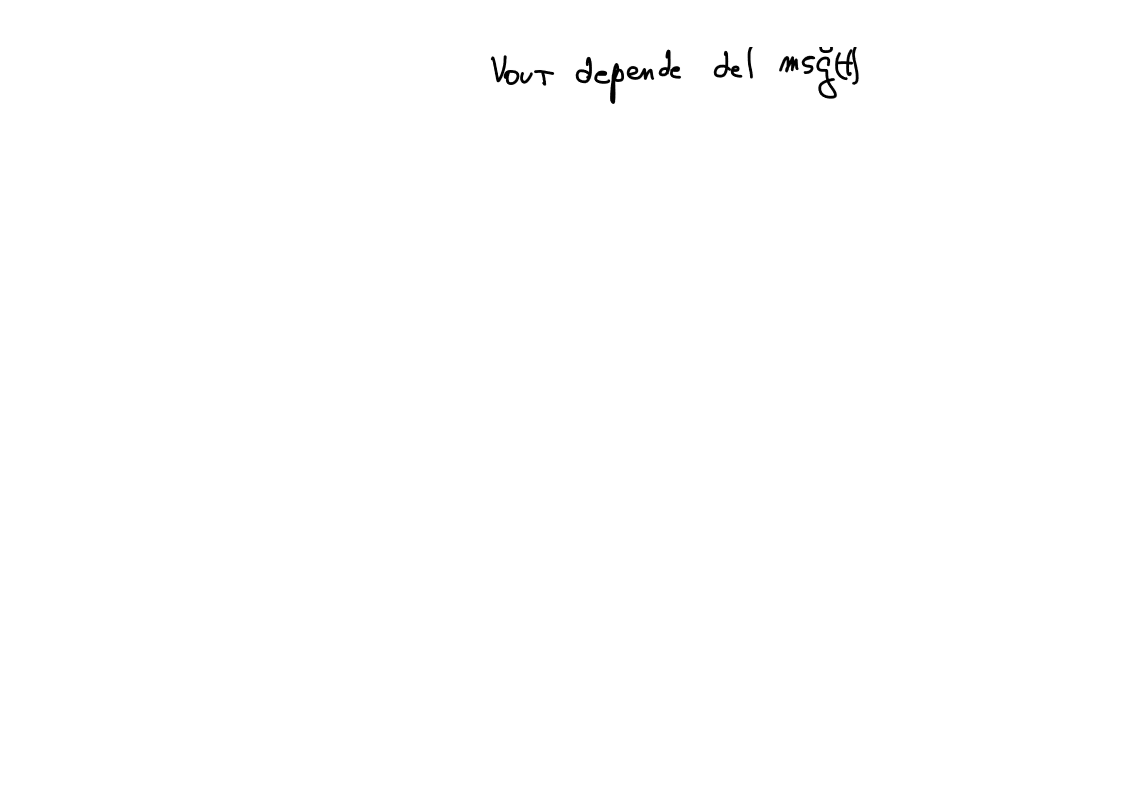 VOUT depende del msg(t)